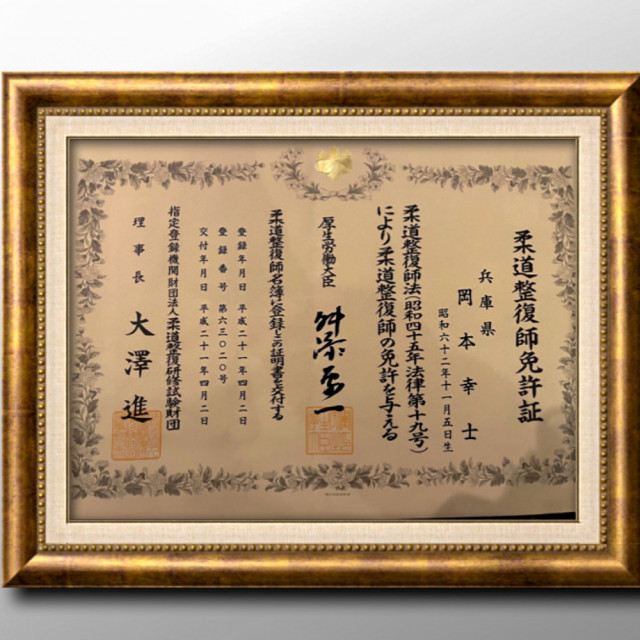 柔道整復師免許証
兵庫県
岡本幸士
昭和六十二年十一月五日生
柔道整復師法(昭和四十五年法律第十九号)
により柔道整復師の免許を与える
厚生労働大臣
舛添要一
柔道整復師名簿に登録しこの証明書を交付する
登録年月日 平成二十一年四月二日
登録番号 第六三〇二〇号
交付年月日 平成二十一年四月二日
指定登録機関財団法人柔道整復研修試験財団
理事長 大澤進